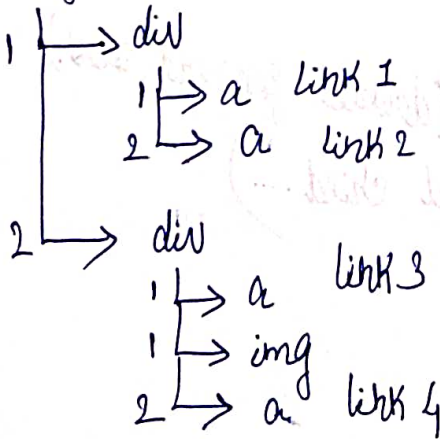 1 → div
1 → a link 1
2 → a link 2
2 → div
1 → a link 3
1 → img
2 → a link 4